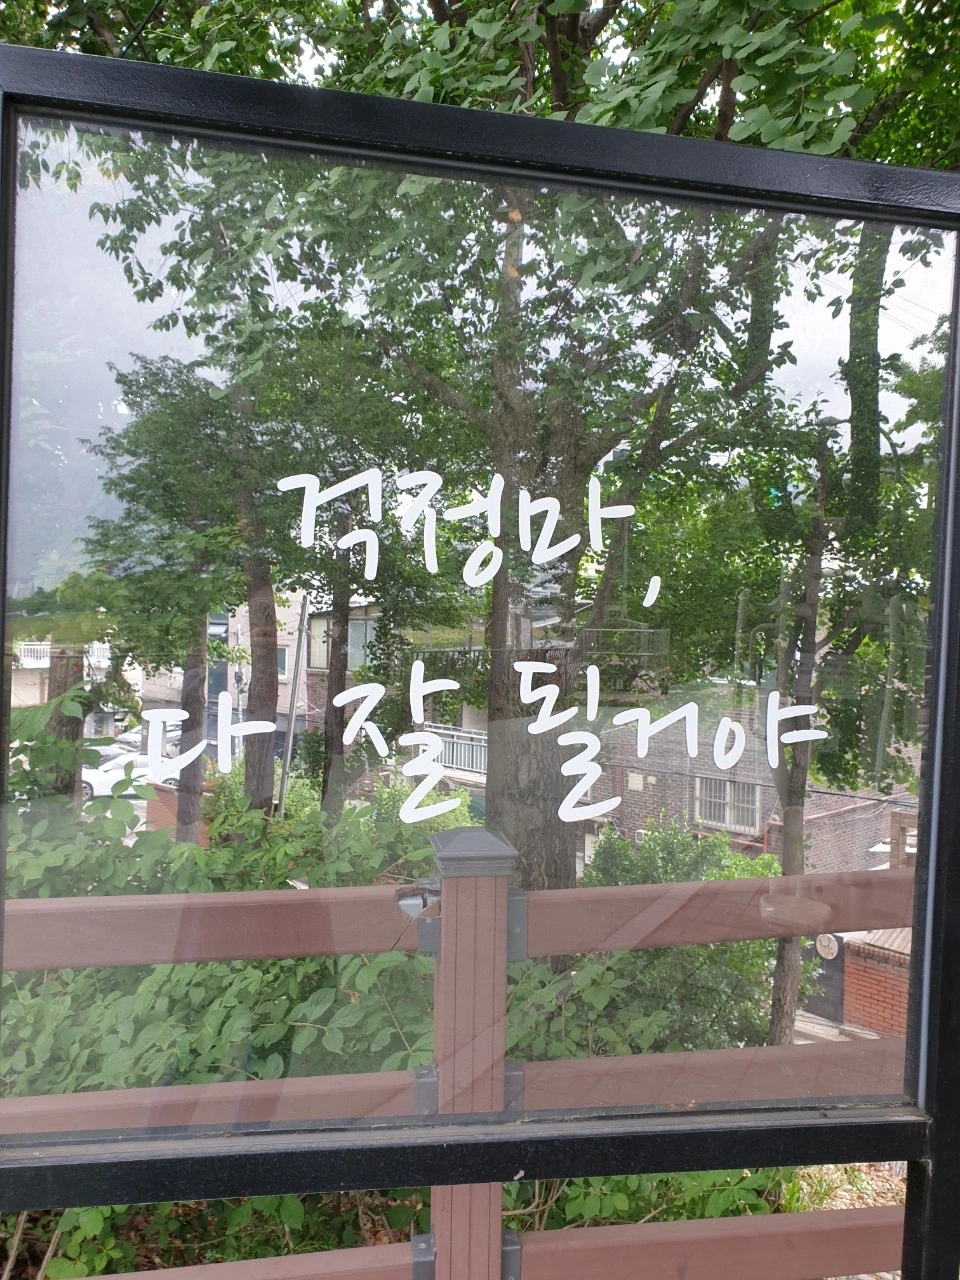 걱정마,
다 잘 될거야